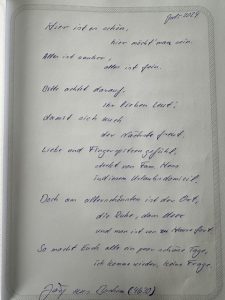 Juli 2024
Hier ist es schön,
hier möcht man sein.
Alles ist sauber,
alles ist fein.
Bitte achtet darauf,
Ihr lieben Leut!
damit sich auch
der Nächste freut.
Liebe und Fingerspitzengefühl,
steckt von Fam.
in diesem Urlaubsdomizil.
Doch am allerschönsten ist der Ort,
die Ruhe, das Meer
und man ist von zu Hause fort.
So macht Euch alle ein paar schöne Tage,
ich komme wieder, keine Frage.
aus